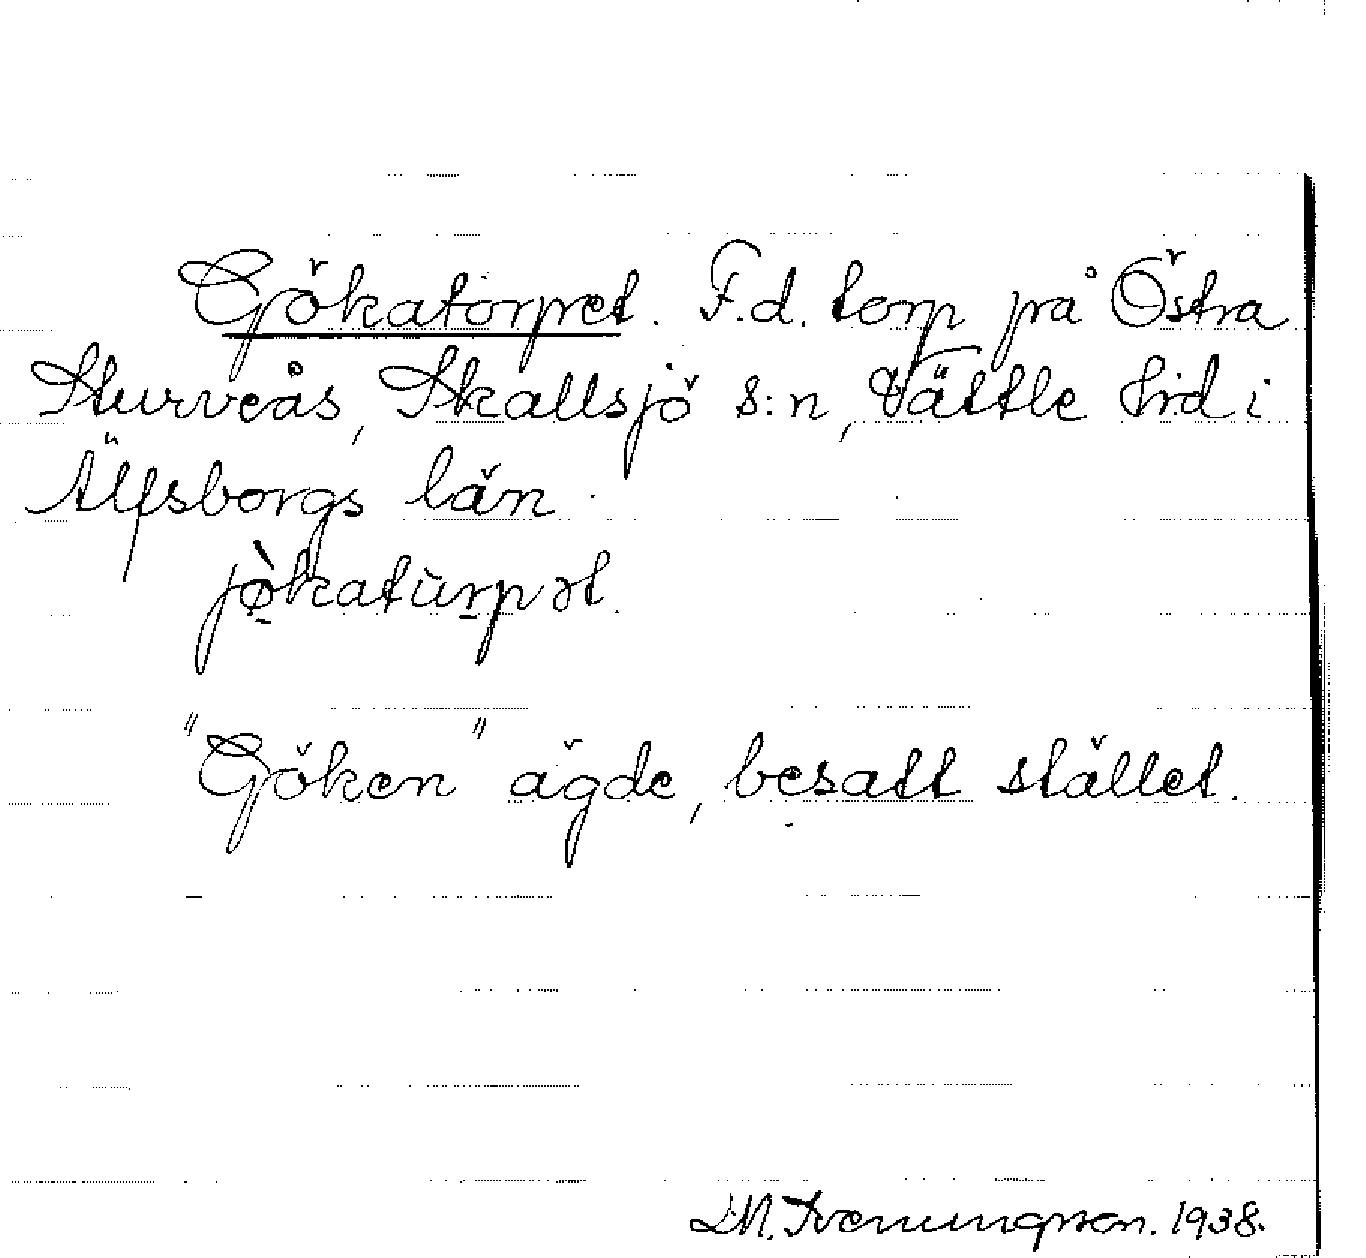 Gökatorpet. F.d. torp på Östra
Sturveås, Skallsjö s:n, Vättle hrd i
Älfsborgs län
jø̀katùrpət.
"Göken" ägde, besatt stället.
1938.